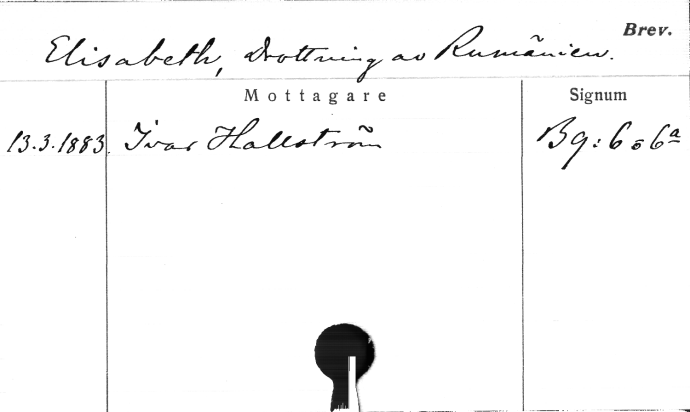 Brev.
Elisabeth, Drottning av Rumänien.
Mottagare Signum
13.3.1883. Ivar Hallström Bg: 6 o 6a